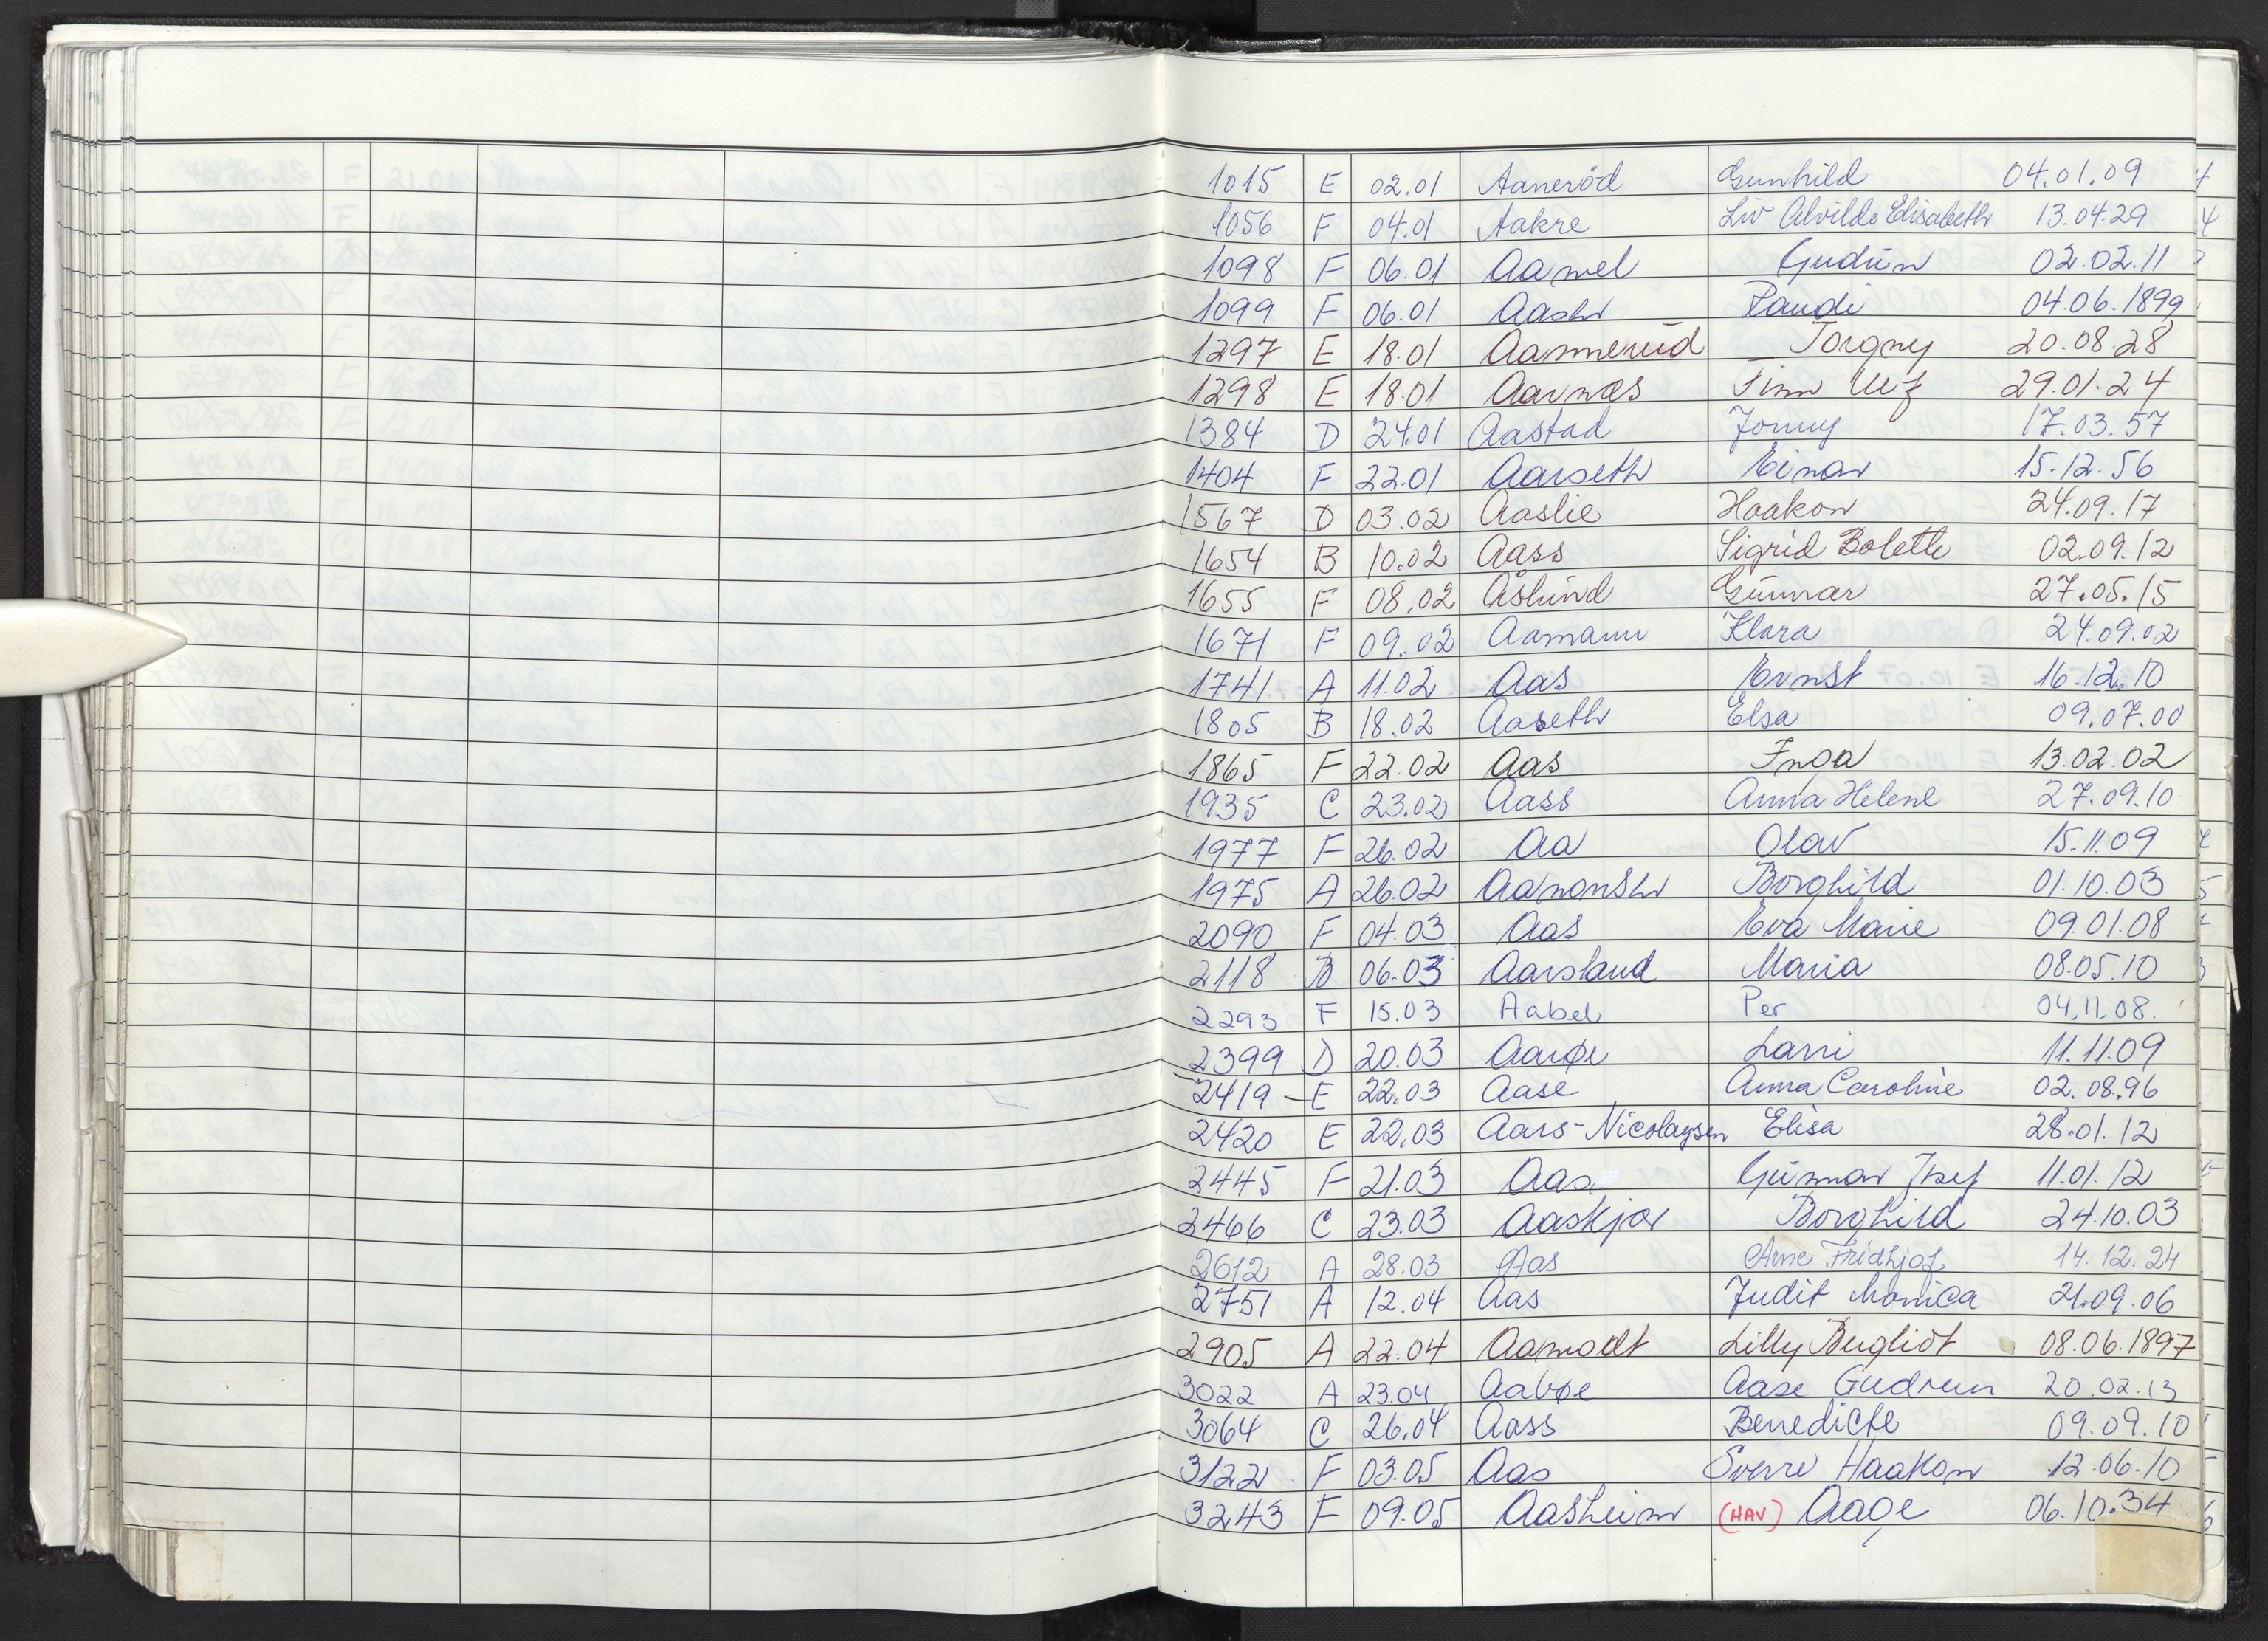 1015 E 02.01 Aanerød Gunhild 04.01.09
1056 F 04.01 Aakre Liv Alvilde Elisabeth 13.04.29
1098 F 06.01 Aamel Gudrun 02.02.11
1099 F 06.01 Randi 04.06.1899
1297 E 18.01 Aamnerud Torgny 20.08.28
1298 E 18.01 Aarnæs Finn Ulf 29.01.24
1384 D 24.01 Aastad Jonny 17.03.57
1404 F 22.01 Aarseth Einar 15.12.56
1567 D 03.02 Aaslie Haakon 24.09.17
1654 B 10.02 Aass Sigrid Bolette 02.09.12
1655 F 08.02 Åslund Gunnar 27.05.15
1671 F 09.02 Aamann Klara 24.09.02
1741 A 11.02 Aas Ernst 16.12.10
1805 B 18.02 Aaseth Elsa 09.07.00
1865 F 22.02 Aas Inga 13.02.02
1935 C 23.02 Aass Anna Helene 27.09.10
1977 F 26.02 Aa Olav 15.11.09
1975 A 26.02 Borghild 01.10.03
2090 F 04.03 Aas Eva Marie 09.01.08
2118 B 06.03 Aarsland Maria 08.05.10
2293 F 15.03 Aabel Per 04.11.08.
2399 D 20.03 Aarøe 11.11.09
2419 - E 22.03 Aase Anna Caroline 02.08.96
2420 E 22.03 Aars-Nicolaysen Elisa 28.01.12
2445 F 21.03 Aas Gunnar Josef 11.01.12
2466 C 23.03 Aaskjær Borghild 24.10.03
2612 A 28.03 Aas Arne Fridtjof 14.12.24
2751 A 12.04 Aas Judit Monica 21.09.06
2905 A 22.04 Aamodt Lilly Bergliot 08.06.1897
3022 A 23.04 Aabøe Aase Gudrun 20.02.13
3064 C 26.04 Aass Benedicte 09.09.10
3122 F 03.05 Aas Sverre Haakon 12.06.10
3243 F 09.05 Aasheim (HAV) Aage 06.10.34